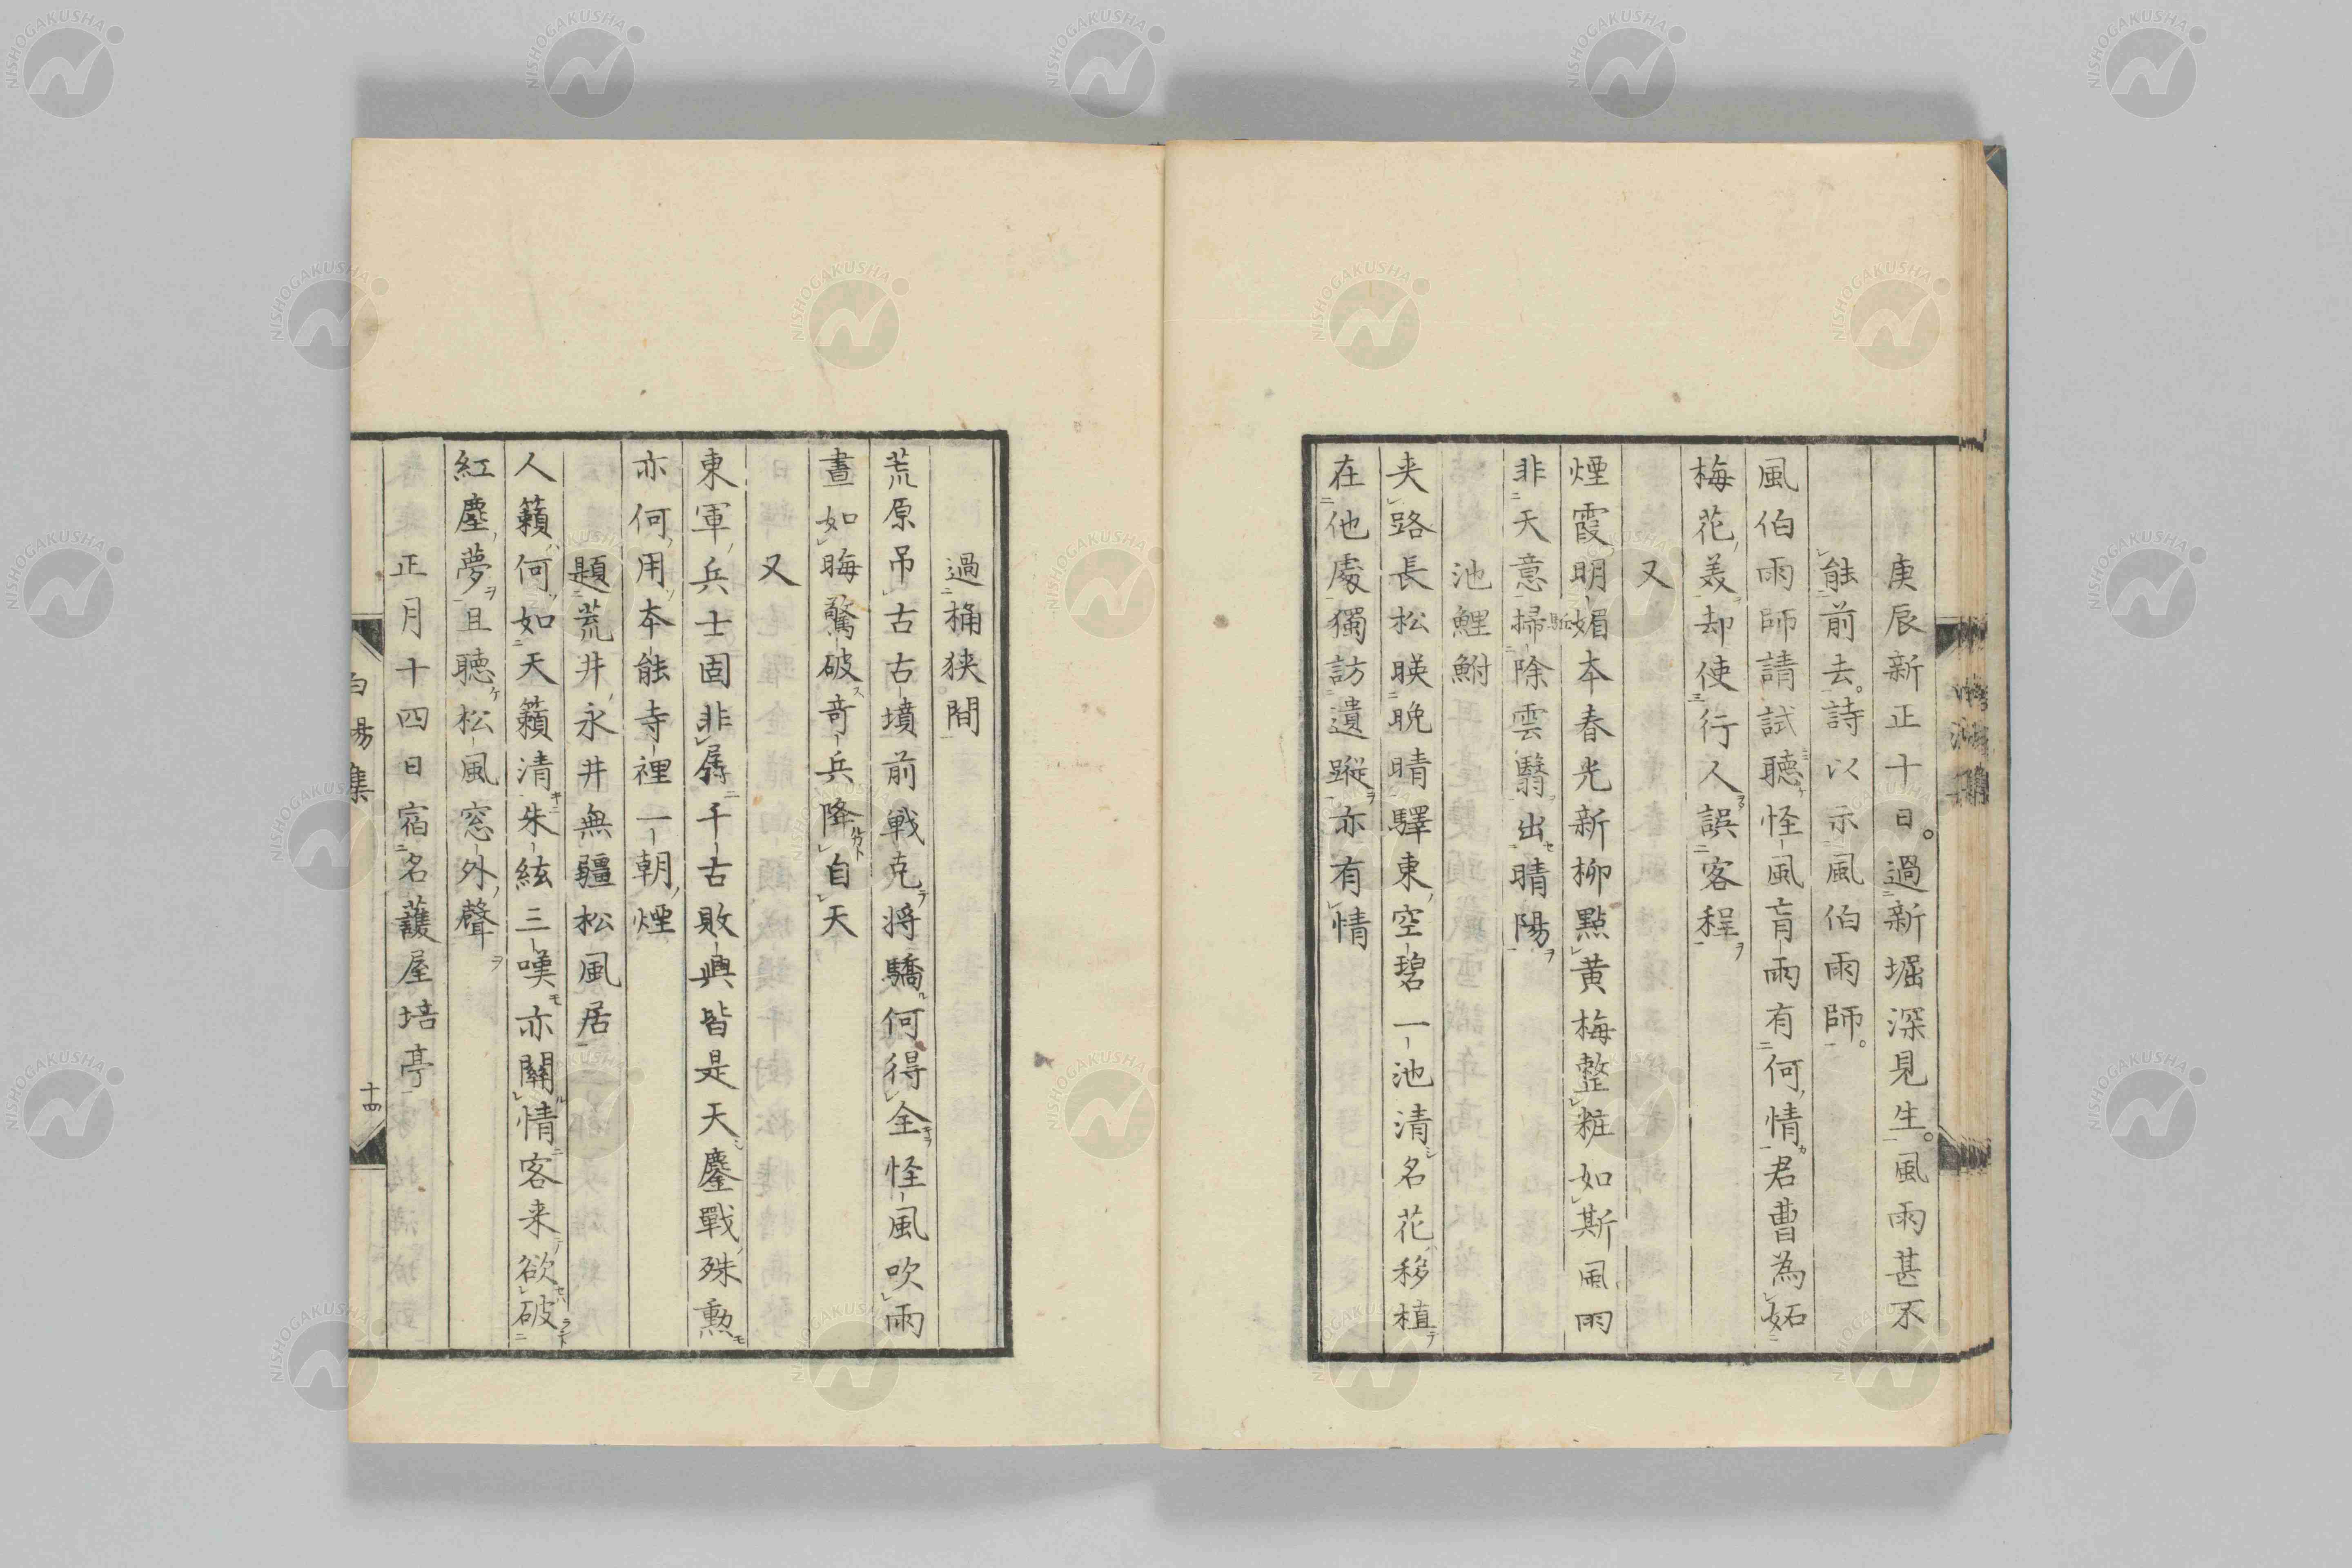 庚辰新正十日。過新堀深見生。風雨甚不
能前去。詩以示風伯雨師。
風伯雨師請試聴怪風盲雨有何情君曹為妬
梅花美却使行人誤客程
又
煙霞明媚本春光新柳點黄梅整粧如斯風雨
非天意掃除雲翳出晴陽
池鯉鮒
夹路長松暎晩晴驛東空碧一池清名花移植
在他處獨訪遺蹤亦有情
過桶狭間
荒原吊古古墳前戦克将驕何得全怪風吹雨
晝如晦驚破竒兵降自天
又
東軍兵士固非孱千古敗興皆是天鏖戰殊勲
亦何用本能寺裡一朝煙
題荒井永井無疆松風居
人籟何如天籟清朱絃三嘆亦關情客来欲破
紅塵夢且聴松風窓外聲
正月十四日宿名護屋培亭
白易集
十四
NISHOGAKUSHA